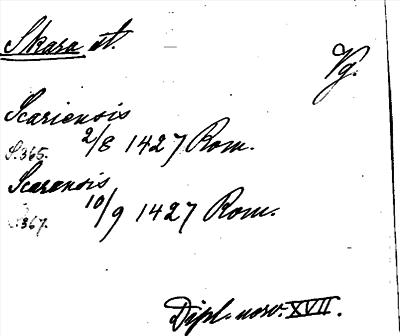 Skara st.
Vg.
Scariensis
S. 365. 2/8 1427 Rom.
Scarensis
S. 367. 10/9 1427 Rom.
Dipl. norv. XVII.